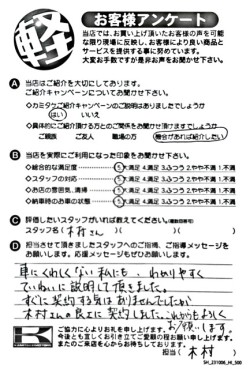 軽
お客様アンケート
当店では、お買い上げ頂いたお客様の声を可能
な限り現場に反映し、お客様により良い商品と
サービスを提供する事に努めています。
大変お手数ですが是非お声をお聞かせ下さい。
A 当店はご紹介を大切にしております。
ご紹介キャンペーンについてお聞かせ下さい。
◇カミタケご紹介キャンペーンのご説明はありましたでしょうか
はい いいえ
◇具体的にご紹介頂ける方とのご関係をお聞かせ頂けますでしょうか
ご親族 ご友人 職場の方 機会があれば紹介したい
B 当店を実際にご利用になった印象をお聞かせ下さい。
◇総合的な満足度 5.大満足 4.満足 3.ふつう 2.やや不満 1.不満
◇スタッフの対応 5.大満足 4.満足 3.ふつう 2.やや不満 1.不満
◇お店の雰囲気、清掃 5.大満足 4.満足 3.ふつう 2.やや不満 1.不満
◇納車時のお車の状態 5.大満足 4.満足 3.ふつう 2.やや不満 1.不満
C 評価したいスタッフがいれば教えてください。(複数回答可)
スタッフ名 ( 木村さん )( )
D 担当させて頂きましたスタッフへのご指摘、ご指導メッセージを
お願いします。応援メッセージもぜひお願いします。
車にくわしくない私にも、わかりやすく
ていねいに説明して頂きました。
すぐに契約する気はありませんでしたが
木村さんの良さに契約しました。これからもよろしく
お願いします。
K
ご協力に心よりお礼を申し上げます。
今後とも宜しくお引き立てご愛顧の程お願い申し上げます。
またのご来店を心からお待ちしております。
担当( 木村 )
SH_231006_HI_500